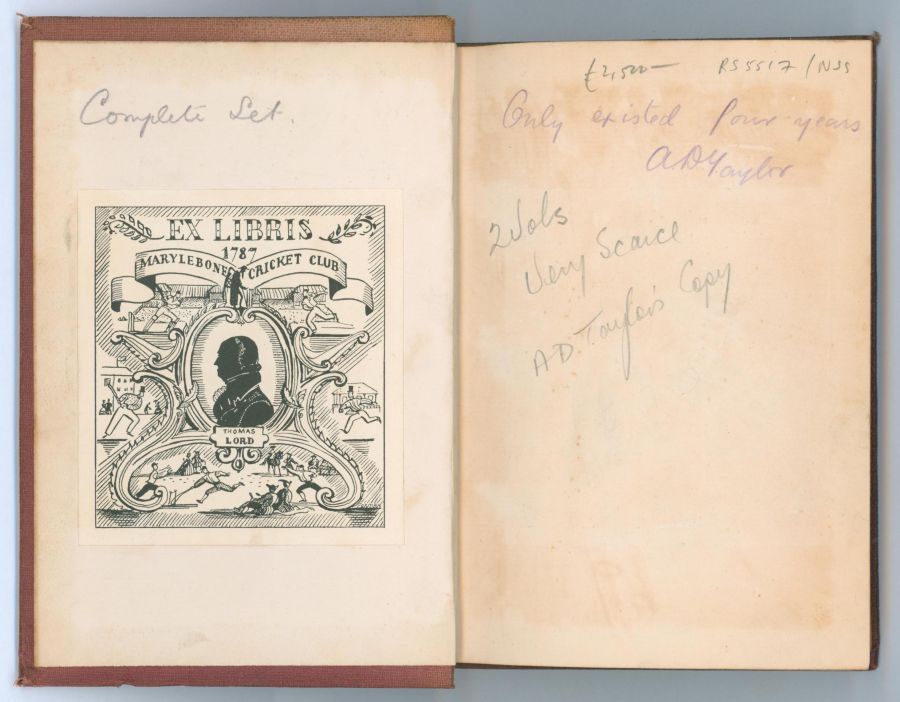 Complete Set.
EX LIBRIS
1787
MARYLEBONE CRICKET CLUB
THOMAS
LORD
£2,500—
RS5517/NSS
Only existed four years
A D Taylor
2 Vols
Very Scarce
A D Taylor's Copy